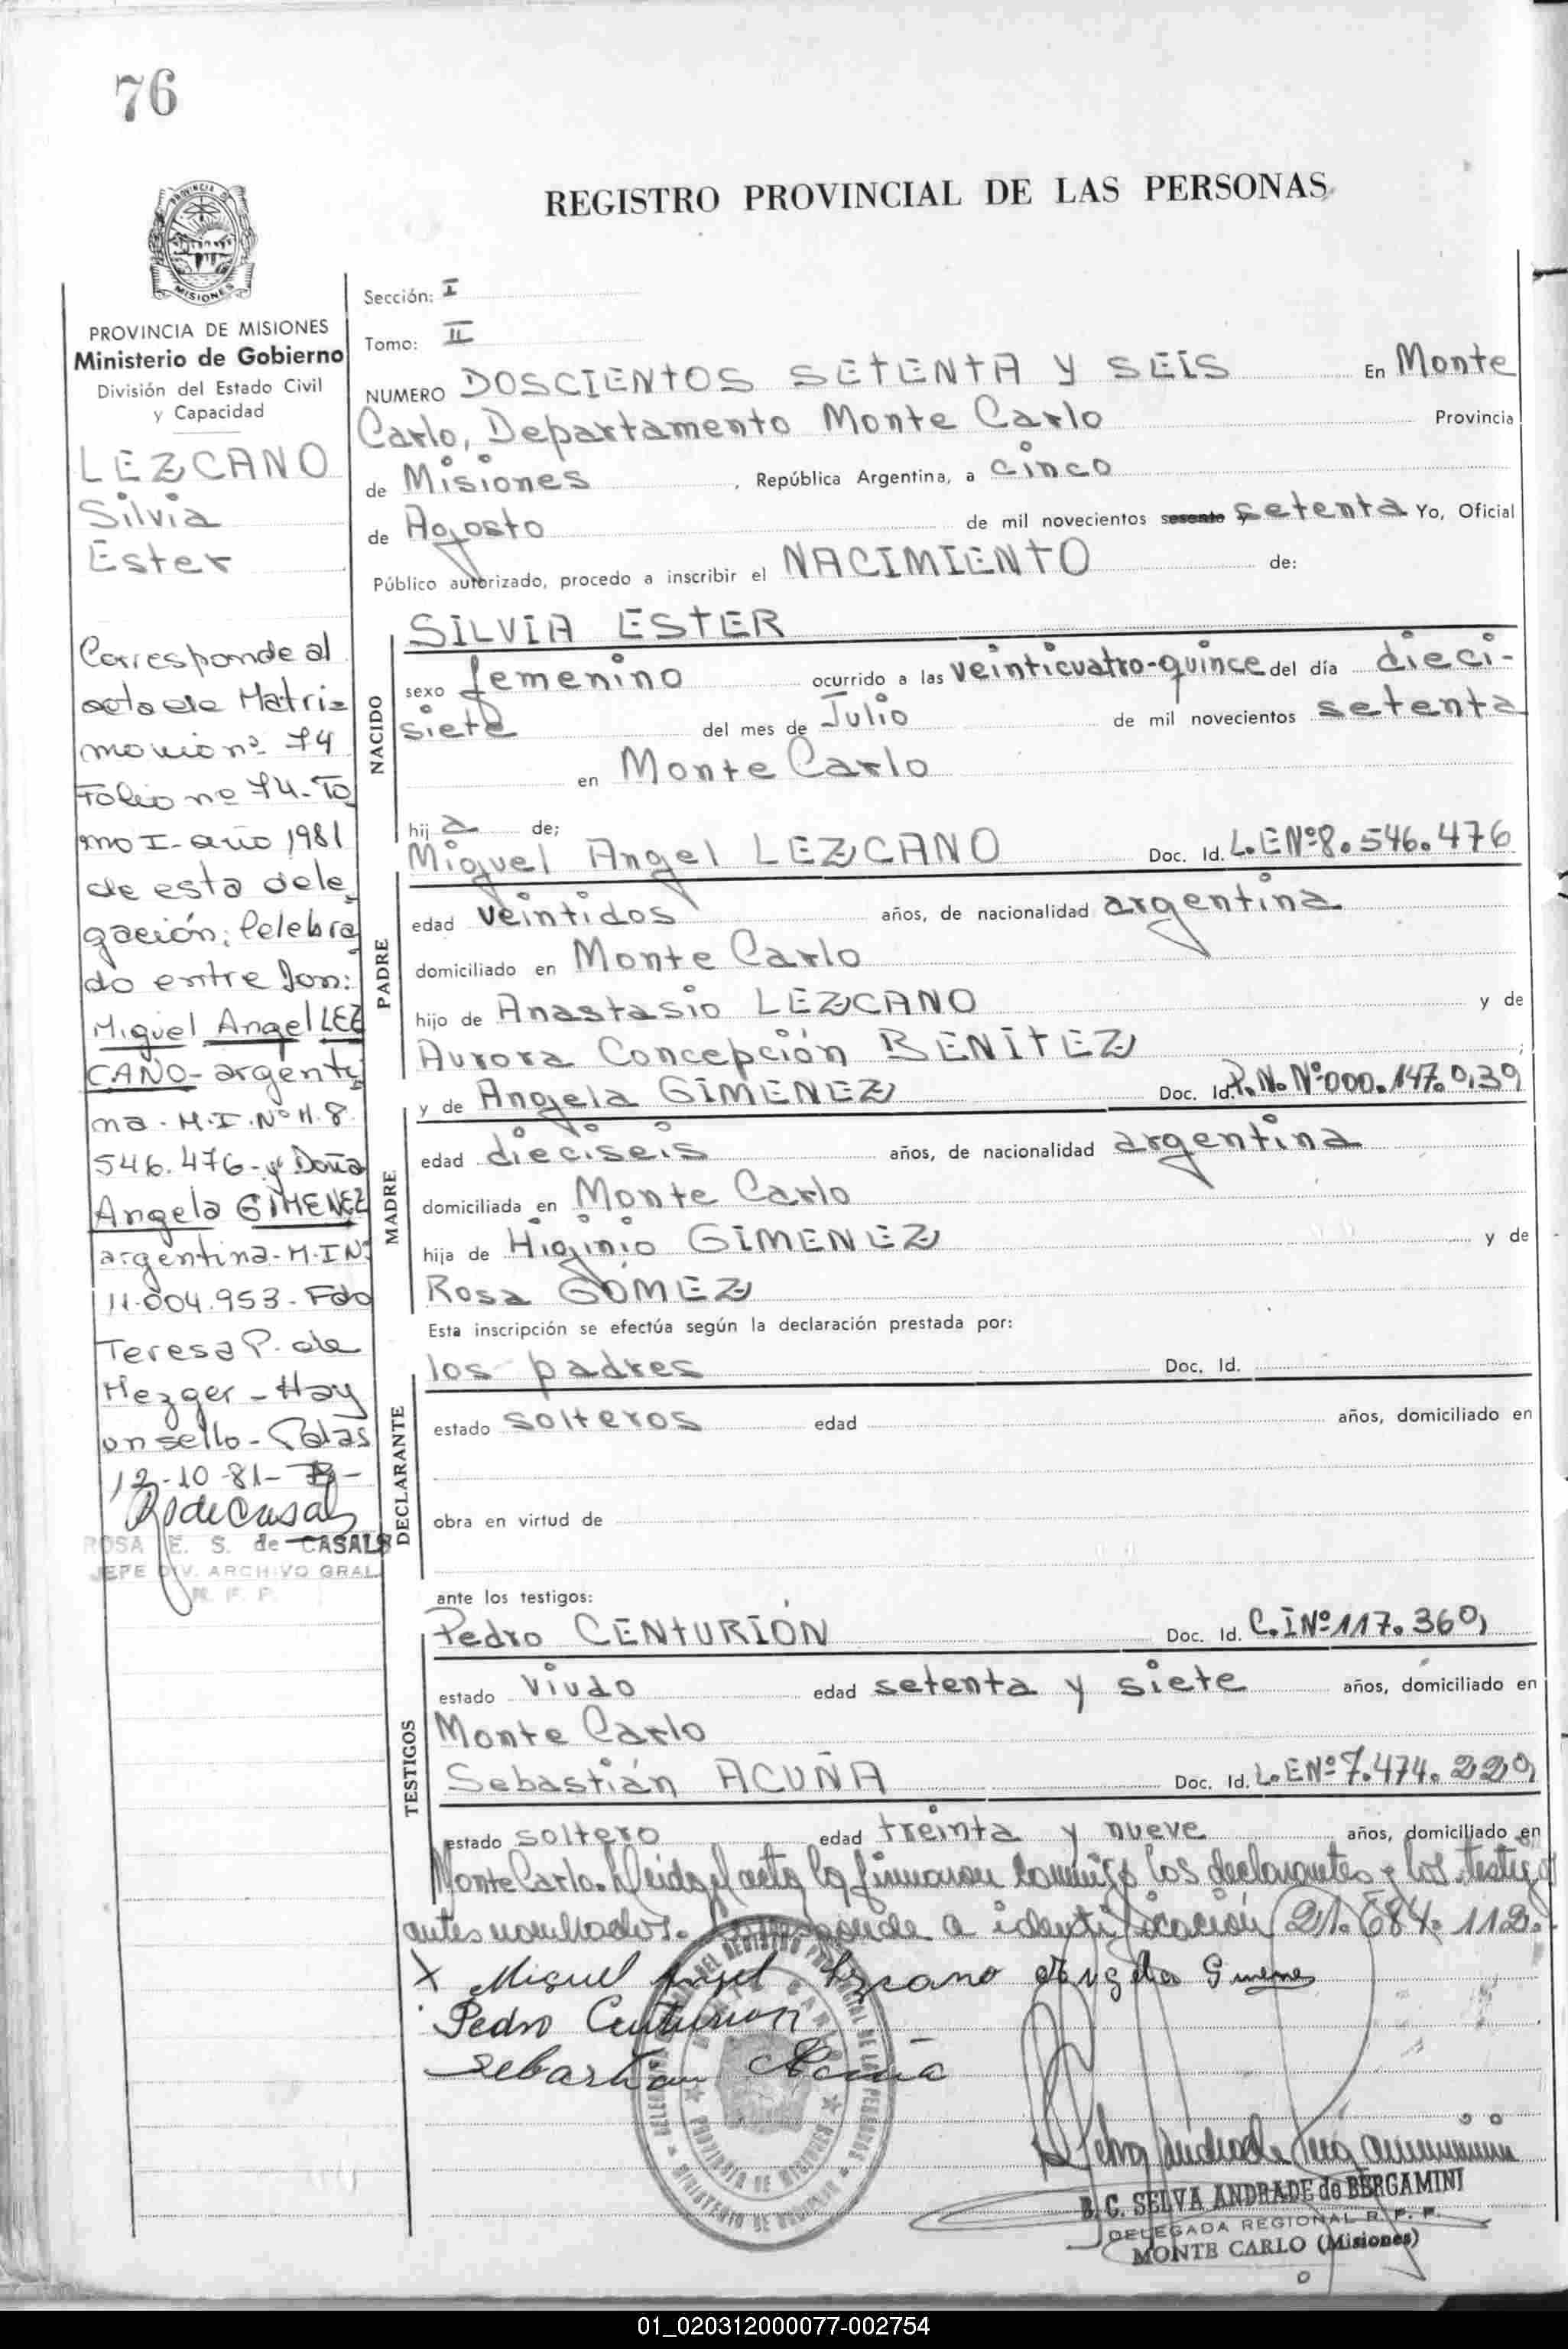 76
REGISTRO PROVINCIAL DE LAS PERSONAS
PROVINCIA DE
MISIONES
PROVINCIA DE MISIONES
Ministerio de Gobierno
División del Estado Civil
y Capacidad
LEZCANO
Silvia
Ester
Corresponde al
acta de Matri-
monio nº 74
Folio nº 74-To
mo I-año 1981
de esta dele
gación; Celebra
do entre Don:
Miguel Angel LEZ
CANO-argenti
na-M.I.Nº M.8.
546.476-y Doña
Angela GIMENEZ
argentina-M.I Nº
11.004.953-Fdo
Teresa P. de
Mezger-Hay
un sello-Psdas
12-10-81-
ROSA E. S. de CASALS
JEFE DIV. ARCHIVO GRAL.
R. P. P.
Sección: I
Tomo: II
NUMERO DOSCIENTOS SETENTA Y SEIS En Monte
Carlo, Departamento Monte Carlo Provincia
de Misiones , República Argentina, a cinco
de Agosto de mil novecientos sesenta y setenta Yo, Oficial
Público autorizado, procedo a inscribir el NACIMIENTO de:
NACIDO
SILVIA ESTER
sexo femenino ocurrido a las veinticuatro-quince del día dieci-
siete del mes de Julio de mil novecientos setenta
en Monte Carlo
hija de;
PADRE
Miguel Angel LEZCANO Doc. Id. L.E Nº 8.546.476
edad veintidos años, de nacionalidad argentina
domiciliado en Monte Carlo
hijo de Anastasio LEZCANO y de
Aurora Concepción BENITEZ
MADRE
y de Angela GIMENEZ Doc. Id. P.N. Nº 000.147.039
edad dieciseis años, de nacionalidad argentina
domiciliada en Monte Carlo
hija de Higinio GIMENEZ y de
Rosa GOMEZ
Esta inscripción se efectúa según la declaración prestada por:
DECLARANTE
los padres Doc. Id.
estado solteros edad años, domiciliado en
obra en virtud de
ante los testigos:
TESTIGOS
Pedro CENTURIÓN Doc. Id. C.I Nº 117.360,
estado viudo edad setenta y siete años, domiciliado en
Monte Carlo
Sebastián ACUÑA Doc. Id. L.E Nº 7.474.220,
estado soltero edad treinta y nueve años, domiciliado en
Monte Carlo. Leida el acta la firmaron conmigo los declarantes y los testigos
antes nombrados. Corresponde a identificación 21.684.112.
X Miguel Angel Lezcano Angela Gimenes
Pedro Centurion
Sebastian Acuña
B. C. SELVA ANDRADE de BERGAMINI
DELEGADA REGIONAL R. P. P.
MONTE CARLO (Misiones)
01_020312000077-002754